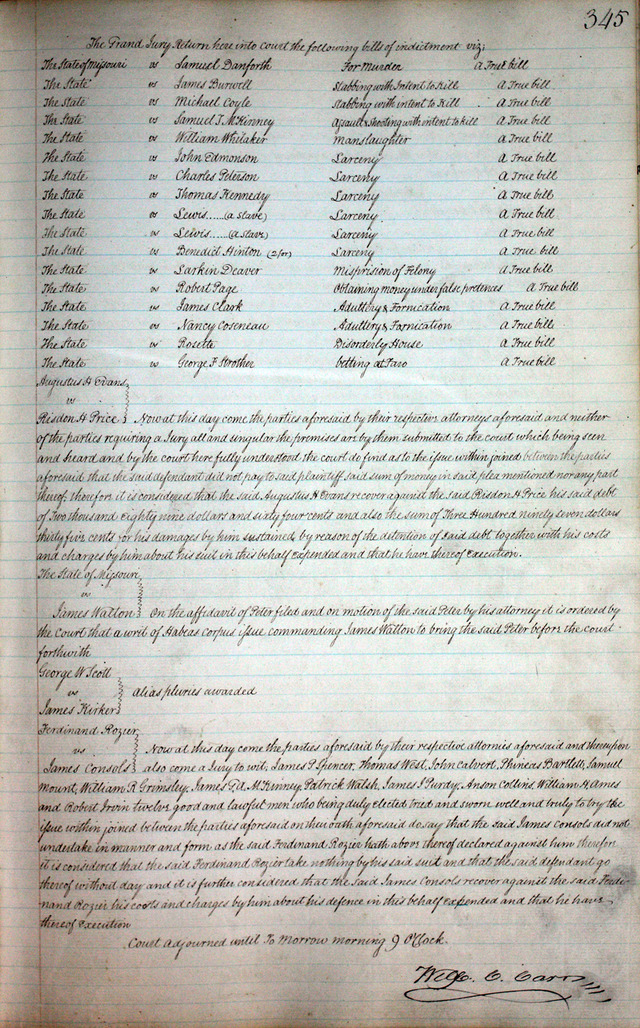 345
The Grand Jury Return here into Court the following bills of indictment viz;
The State of Missouri vs Samuel Danforth For Murder A True bill
The State vs James Burwell Stabbing with Intent to Kill A True bill
The State vs Michael Coyle Stabbing with intent to Kill A True bill
The State vs Samuel T. McKinney Assault & Shooting with intent to kill A True bill
The State vs William Whitaker manslaughter A True bill
The State vs John Edmonson Larceny A True bill
The State vs Charles Peterson Larceny A True bill
The State vs Thomas Kennedy Larceny A True bill
The State vs Lewis..... (a slave) Larceny A True bill
The State vs Lewis..... (a slave) Larceny A True bill
The State vs Benedict Hinton (2 for) Larceny A True bill
The State vs Larkin Deaver Misprision of Felony A True bill
The State vs Robert Page Obtaining money under false pretences A True bill
The State vs James Clark Adultery & Fornication A True bill
The State vs Nancy Coseneau Adultery & Fornication A True bill
The State vs Rosette Disorderly House A True bill
The State vs George F Strother betting at Faro A True bill
Augustus H Evans
vs
Risdon H Price Now at this day come the parties aforesaid by their respective attorneys aforesaid and neither
of the parties requiring a Jury all and singular the premises are by them submitted to the court which being seen
and heard and by the court here fully understood the court do find as to the issue within joined between the parties
aforesaid that the said defendant did not pay to said plaintiff said sum of money in said plea mentioned nor any part
thereof, therefore it is considered that the said Augustus H Evans recover against the said Risdon H Price his said debt
of Two thousand eighty nine dollars and sixty four cents and also the sum of Three Hundred ninety seven dollars
thirty five cents for his damages by him sustained by reason of the detention of said debt together with his costs
and charges by him about his suit in this behalf expended and that he have thereof execution.
The State of Missouri
vs
James Walton On the affidavit of Peter filed and on motion of the said Peter by his attorney it is ordered by
the Court that a writ of Habeas corpus issue commanding James Walton to bring the said Peter before the court
forthwith
George W Scott
vs alias pluries awarded
James Kirker
Ferdinand Rozier
vs Now at this day come the parties aforesaid by their respective attornies aforesaid and thereupon
James Consols also come a Jury to wit, James P Spencer, Thomas West, John Calvert, Phineas Bartlett, Samuel
Mount, William R Grimsley, James McKenney, Patrick Walsh, James J Purdy, Anson Collins, William H Ames
and Robert Irvin twelve good and lawful men who being duly elected tried and sworn well and truly to try the
issue within joined between the parties aforesaid on their oath aforesaid do say that the said James Consols did not
undertake in manner and form as the said Ferdinand Rozier hath above thereof declared against him therefore
it is considered that the said Ferdinand Rozier take nothing by his said suit and that the said defendant go
thereof without day and it is further considered that the said James Consols recover against the said Ferdi-
nand Rozier his costs and charges by him about his defence in this behalf expended and that he have
thereof execution
Court adjourned until To Morrow morning 9 O'Clock.
Wm. C. Carr